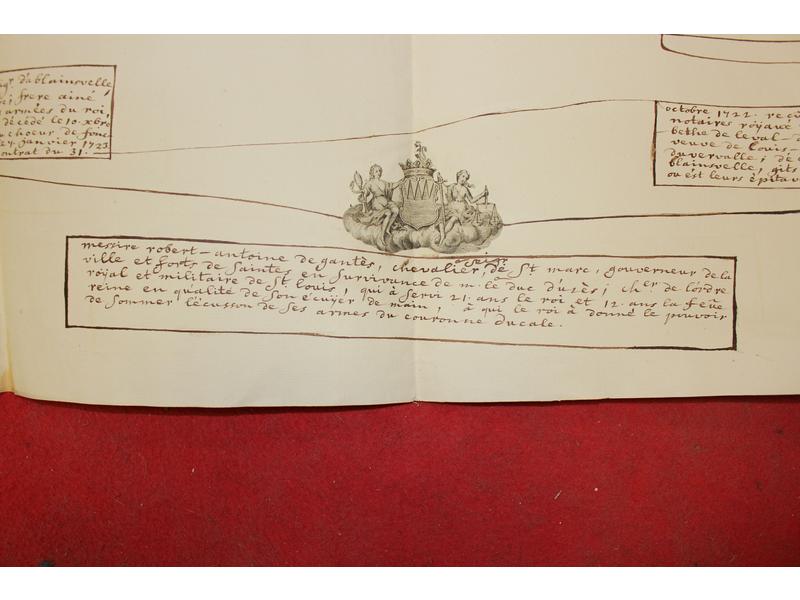 dablainsvelle
frere ainé
armées du roi
décédé le 10. xbre
choeur de
janvier 1723
ontrat du 31.
octobre 1722. reçu
notaires royaux
bethe de leval
veuve de louis-
duvervalle; de
blainsvelle, gits
ou est leurs épitap
& seigr.
messire robert-antoine de gantès, chevalier, de St. marc, gouverneur de la
ville et forts de saintes en survivance de m. le duc duzès; cher. de lordre
royal et militaire de St. louis, qui à servi 21. ans le roi et 12. ans la feüe
reine en qualité de son ecuyer de main, à qui le roi à donné le pouvoir
de sommer lécusson de ses armes du couronne ducale.